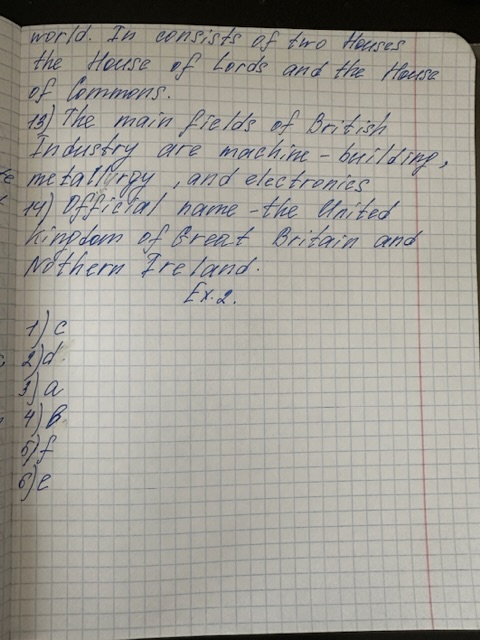 world. In consists of two Houses
the House of Lords and the House
of Commons.
13) The main fields of British
Industry are machine-building,
metallurgy, and electronics
14) Official name - the United
Kingdom of Great Britain and
Nothern Ireland.
Ex. 2.
1) c
2) d.
3) a
4) B
5) f
6) e